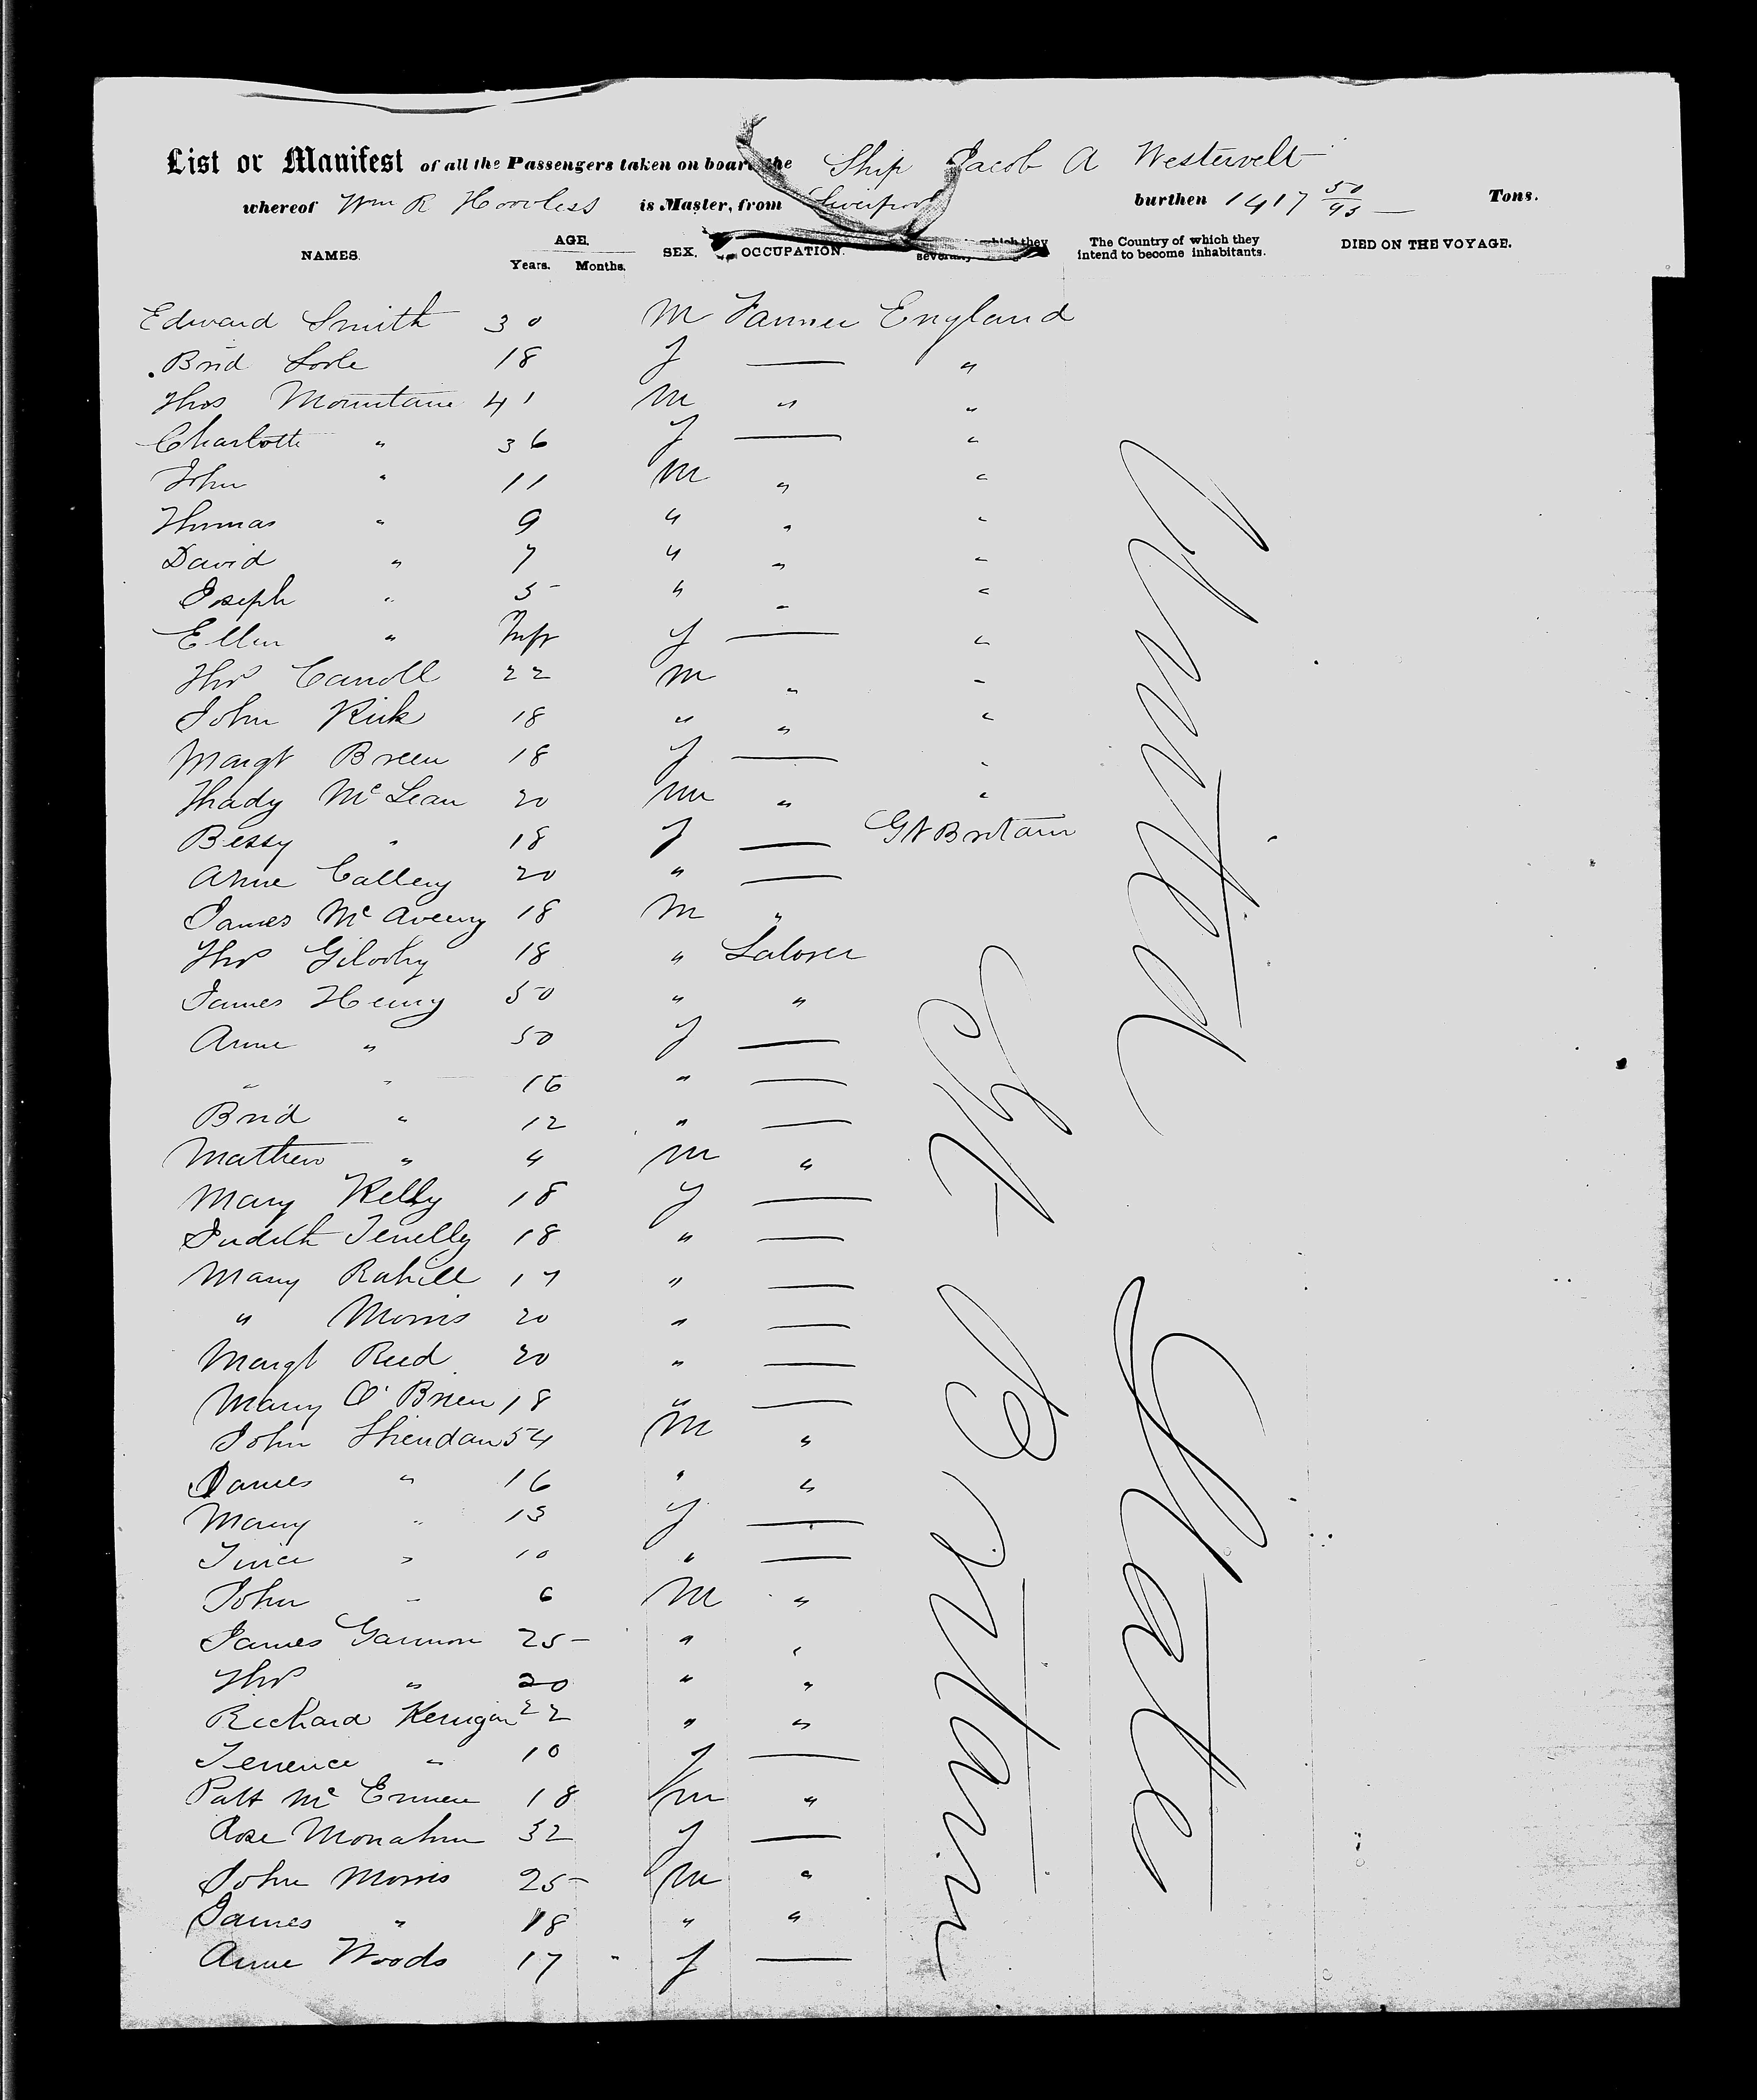 List or Manifest of all the Passengers taken on board the Ship Jacob A Westervelt
whereof Wm R is Master, from Liverpool burthen 1417 50/95 Tons.
NAMES. AGE. Years. Months. SEX. OCCUPATION. which they The Country of which they intend to become inhabitants. DIED ON THE VOYAGE.
Edward Smith 30 M Farmer England
Brid 18 f — "
Thos Mountain 41 M " "
Charlotte " 36 f — "
John " 11 M " "
Thomas " 9 " " "
David " 7 " " "
Joseph " 5 " " "
Ellen " Inft f — "
Thos Carroll 22 M " "
John Kirk 18 " " "
Margt Breen 18 f — "
Thady McLean 20 m " "
Bessy " 18 f — Gt Britain
Anne Callery 20 " —
James McAveeny 18 M "
Thos 18 " Laborer
James Henry 50 " "
Anne " 50 f —
" " 16 " —
Brid " 12 " —
Mathew " 4 M "
Mary Kelly 18 f —
Judith 18 " —
Mary Rahill 17 " —
" Morris 20 " —
Margt Reed 20 " —
Mary O'Brien 18 " —
John Sheridan 54 M "
James " 16 " "
Mary " 13 f —
" 10 " —
John " 6 M "
James Gannon 25 " "
Thos " 20 " "
Richard Kerrigan 22 " "
Terrence " 10 f —
Patt Mc 18 m "
Rose Monahan 32 f —
John Morris 25 M "
James " 18 " "
Anne Woods 17 f —
Gt Britain
United State